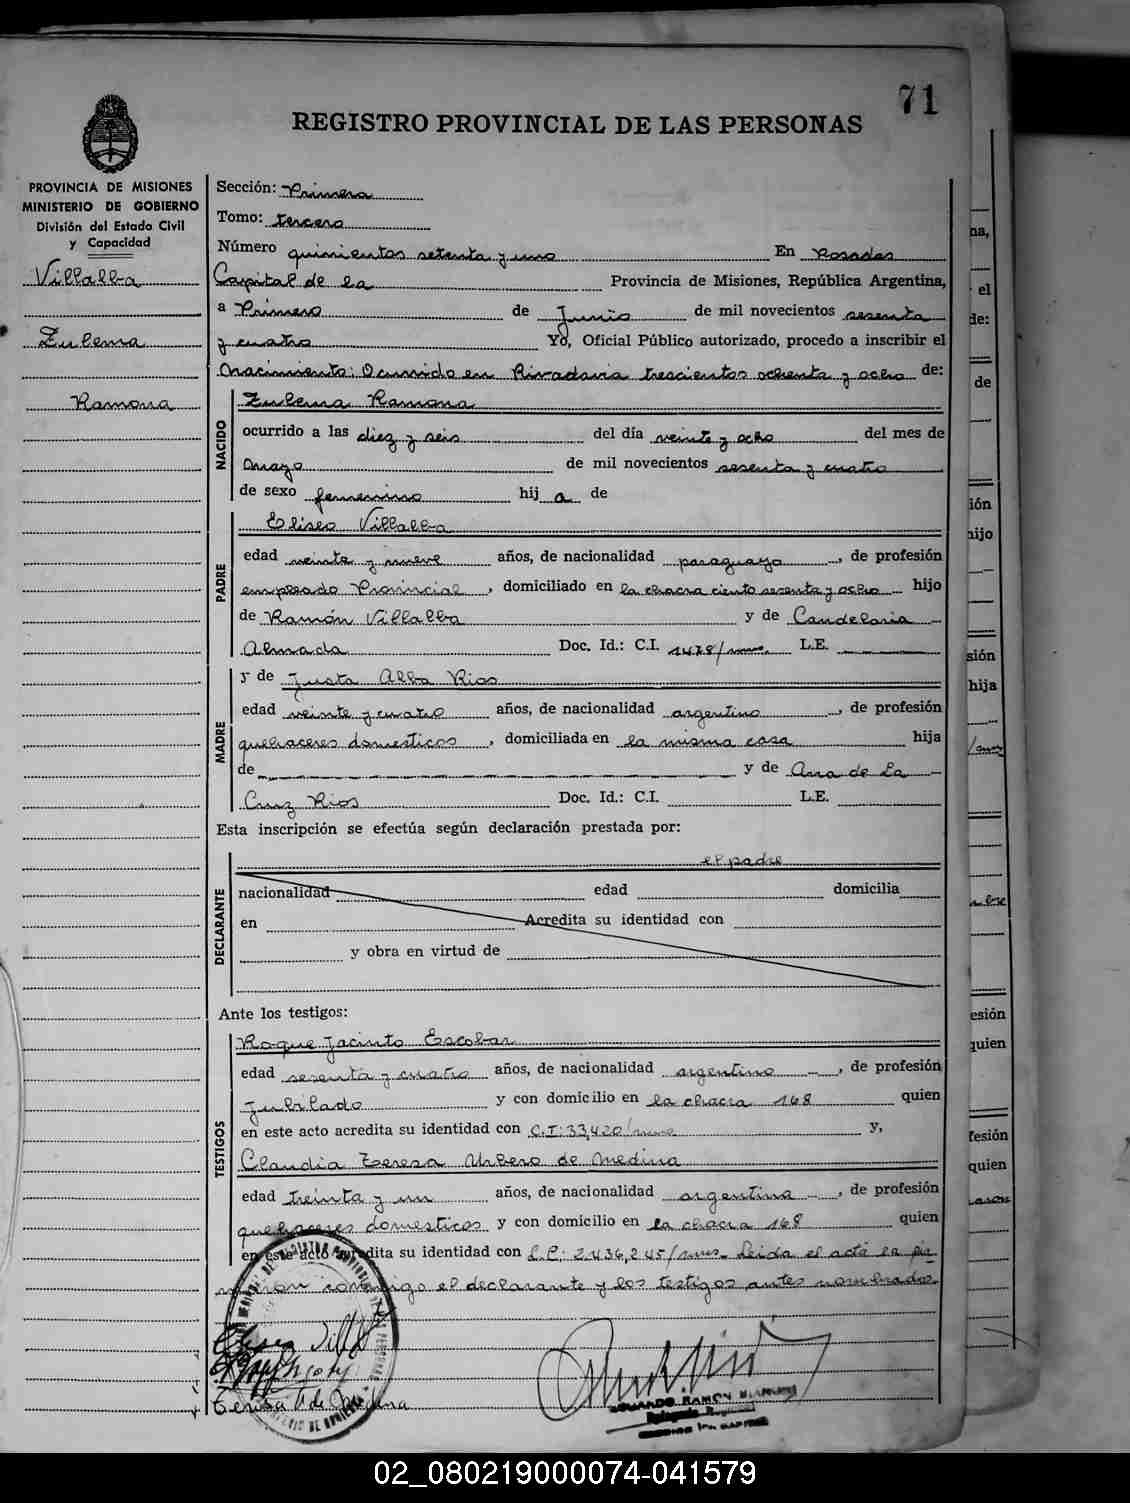 71
REGISTRO PROVINCIAL DE LAS PERSONAS
PROVINCIA DE MISIONES
MINISTERIO DE GOBIERNO
División del Estado Civil
y Capacidad
Villalba
Zulema
Ramona
Sección: Primera
Tomo: tercero
Número quinientos setenta y uno En Posadas
Capital de la Provincia de Misiones, República Argentina,
a Primero de Junio de mil novecientos sesenta
y cuatro Yo, Oficial Público autorizado, procedo a inscribir el
nacimiento: Ocurrido en Rivadavia trescientos ochenta y ocho de:
NACIDO
Zulema Ramona
ocurrido a las diez y seis del día veinte y ocho del mes de
mayo de mil novecientos sesenta y cuatro
de sexo femenino hij a de
PADRE
Eliseo Villalba
edad veinte y nueve años, de nacionalidad paraguaya, de profesión
empleado Provincial, domiciliado en la chacra ciento sesenta y ocho hijo
de Ramón Villalba y de Candelaria
Almada Doc. Id.: C.I. 1478/mnes. L.E.
MADRE
y de Justa Alba Rios
edad veinte y cuatro años, de nacionalidad argentina, de profesión
quehaceres domesticos, domiciliada en la misma casa hija
de y de Ana de La
Cruz Rios Doc. Id.: C.I. L.E.
Esta inscripción se efectúa según declaración prestada por:
DECLARANTE
el padre
nacionalidad edad domicilia
en Acredita su identidad con
y obra en virtud de
Ante los testigos:
TESTIGOS
Roque Jacinto Escobar
edad sesenta y cuatro años, de nacionalidad argentino, de profesión
Jubilado y con domicilio en la chacra 168 quien
en este acto acredita su identidad con C.I: 33,420/mnes y,
Claudia Teresa de Medina
edad treinta y un años, de nacionalidad argentina, de profesión
quehaceres domesticos y con domicilio en la chacra 168 quien
en este acto acredita su identidad con 2.436,245/mnes. Leida el acta la fir
maron conmigo el declarante y los testigos antes nombrados
Eliseo
Teresa de Medina
EDUARDO RAMON
02_080219000074-041579